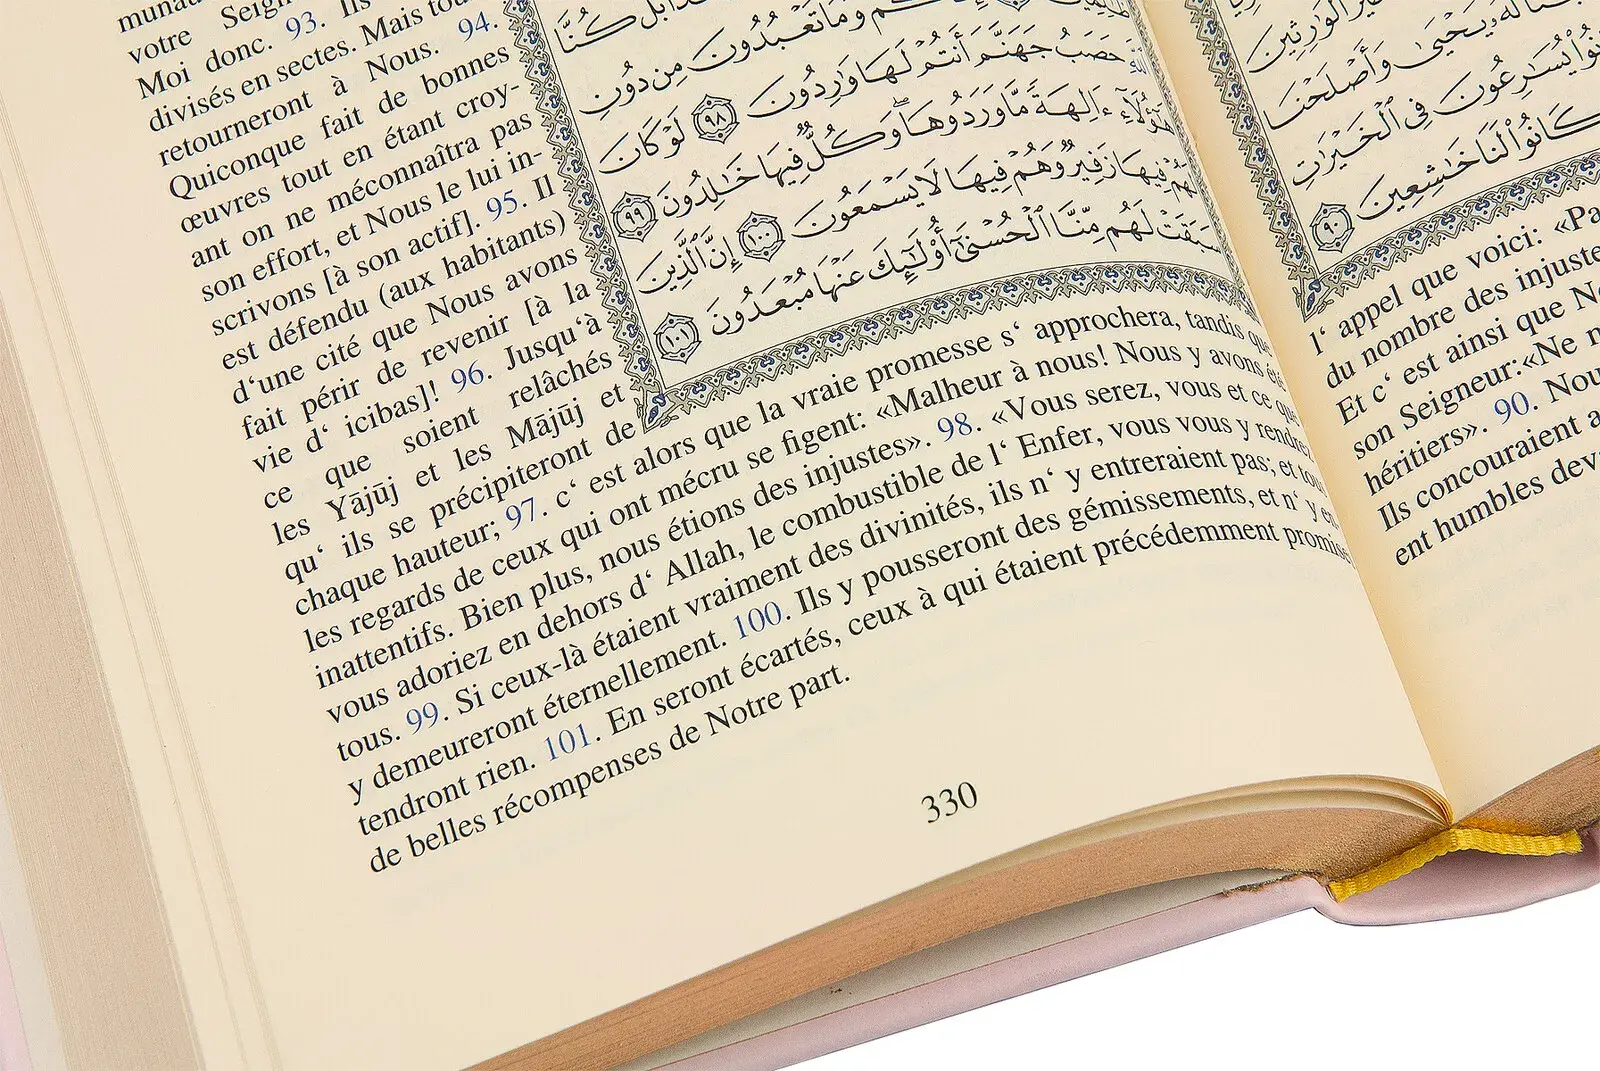 votre Seign
Moi donc. 93. Ils
divisés en sectes. Mais tou
retourneront à Nous. 94.
Quiconque fait de bonnes
œuvres tout en étant croy-
ant on ne méconnaîtra pas
son effort, et Nous le lui in-
scrivons [à son actif]. 95. Il
est défendu (aux habitants)
d‘une cité que Nous avons
fait périr de revenir [à la
vie d‘ icibas]! 96. Jusqu‘à
ce que soient relâchés
les Yājūj et les Mājūj et
qu‘ ils se précipiteront de
chaque hauteur; 97. c‘ est alors que la vraie promesse s‘ approchera, tandis que
les regards de ceux qui ont mécru se figent: «Malheur à nous! Nous y avons été
inattentifs. Bien plus, nous étions des injustes». 98. «Vous serez, vous et ce que
vous adoriez en dehors d‘ Allah, le combustible de l‘ Enfer, vous vous y rendrez
tous. 99. Si ceux-là étaient vraiment des divinités, ils n‘ y entreraient pas; et tous
y demeureront éternellement. 100. Ils y pousseront des gémissements, et n‘ y en-
tendront rien. 101. En seront écartés, ceux à qui étaient précédemment promises
de belles récompenses de Notre part.
330
وَمَا تَعْبُدُونَ مِن دُونِ
حَصَبُ جَهَنَّمَ أَنتُمْ لَهَا وَارِدُونَ ٩٨ لَوْ كَانَ
هَٰؤُلَاءِ ءَالِهَةً مَّا وَرَدُوهَا وَكُلٌّ فِيهَا خَٰلِدُونَ ٩٩
لَهُمْ فِيهَا زَفِيرٌ وَهُمْ فِيهَا لَا يَسْمَعُونَ ١٠٠ إِنَّ ٱلَّذِينَ
سَبَقَتْ لَهُم مِّنَّا ٱلْحُسْنَىٰٓ أُوْلَٰٓئِكَ عَنْهَا مُبْعَدُونَ ١٠١
خَيْرُ ٱلْوَٰرِثِينَ
لَهُۥ يَحْيَىٰ وَأَصْلَحْنَا
يُسَٰرِعُونَ فِى ٱلْخَيْرَٰتِ
كَانُوا۟ لَنَا خَٰشِعِينَ ٩٠
l‘ appel que voici: «Pa
du nombre des injuste
Et c‘ est ainsi que No
son Seigneur:«Ne m
héritiers». 90. Nou
Ils concouraient a
ent humbles dev